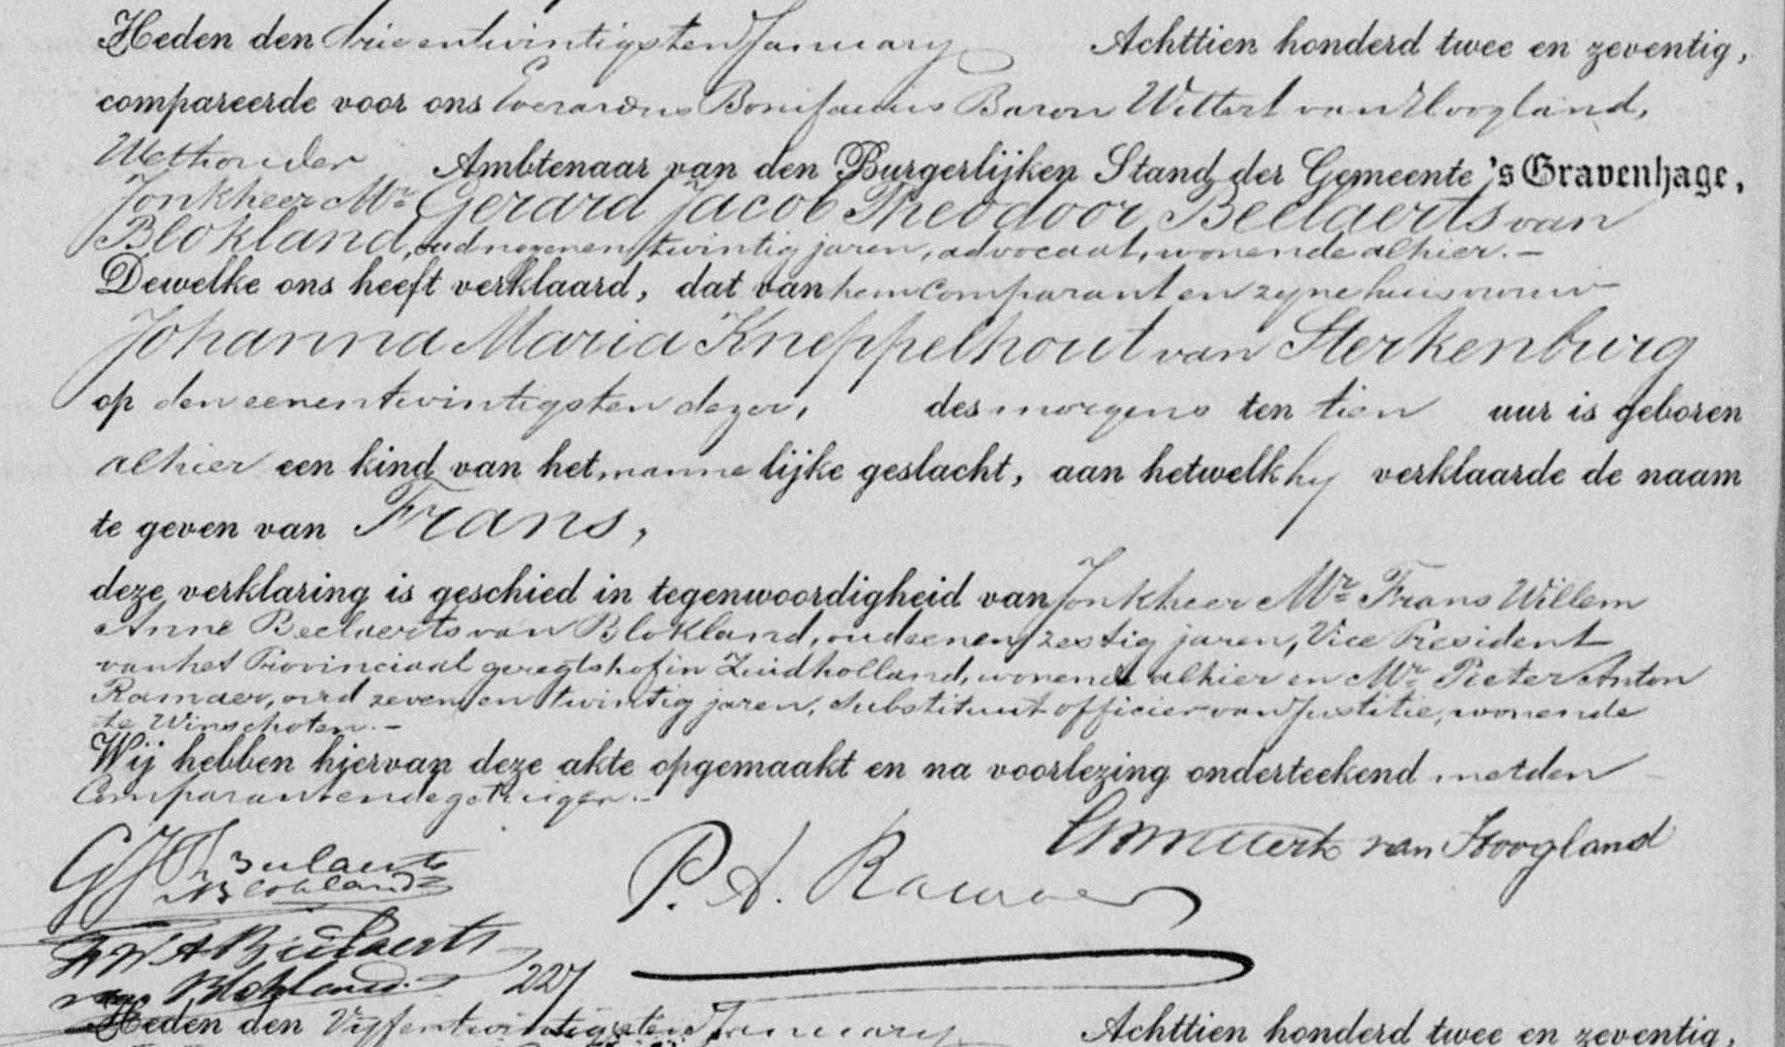 Heden den drieentwintigsten January Achttien honderd twee en zeventig,
compareerde voor ons Everardus Bonifacius Baron Wittert van Hoogland,
Wethouder Ambtenaar van den Burgerlijken Stand der Gemeente 's Gravenhage,
Jonkheer Mr. Gerard Jacob Theodoor Beelaerts van
Blokland, oud negenentwintig jaren, advocaat, wonende alhier. –
Dewelke ons heeft verklaard, dat van hem Comparant en zyne huisvrouw
Johanna Maria Kneppelhout van Sterkenburg
op den eenentwintigsten dezer, des morgens ten tien uur is geboren
alhier een kind van het mannelijke geslacht, aan hetwelk hy verklaarde de naam
te geven van Frans,
deze verklaring is geschied in tegenwoordigheid van Jonkheer Mr. Frans Willem
Anne Beelaerts van Blokland, oud eenenzestig jaren, Vice President
van het Provinciaal geregtshof in Zuidholland, wonende alhier en Mr. Pieter Anton
Ramaer, oud zevenentwintig jaren, Substituut officier van Justitie, wonende
te Winschoten. –
Wij hebben hiervan deze akte opgemaakt en na voorlezing onderteekend met den
Comparant en de getuigen. –
van Hoogland
GJTh Beelaerts
v Blokland
P. A. Ramaer
F W A Beelaerts
van Blokland.
227
Heden den Vyfentwintigsten January Achttien honderd twee en zeventig,